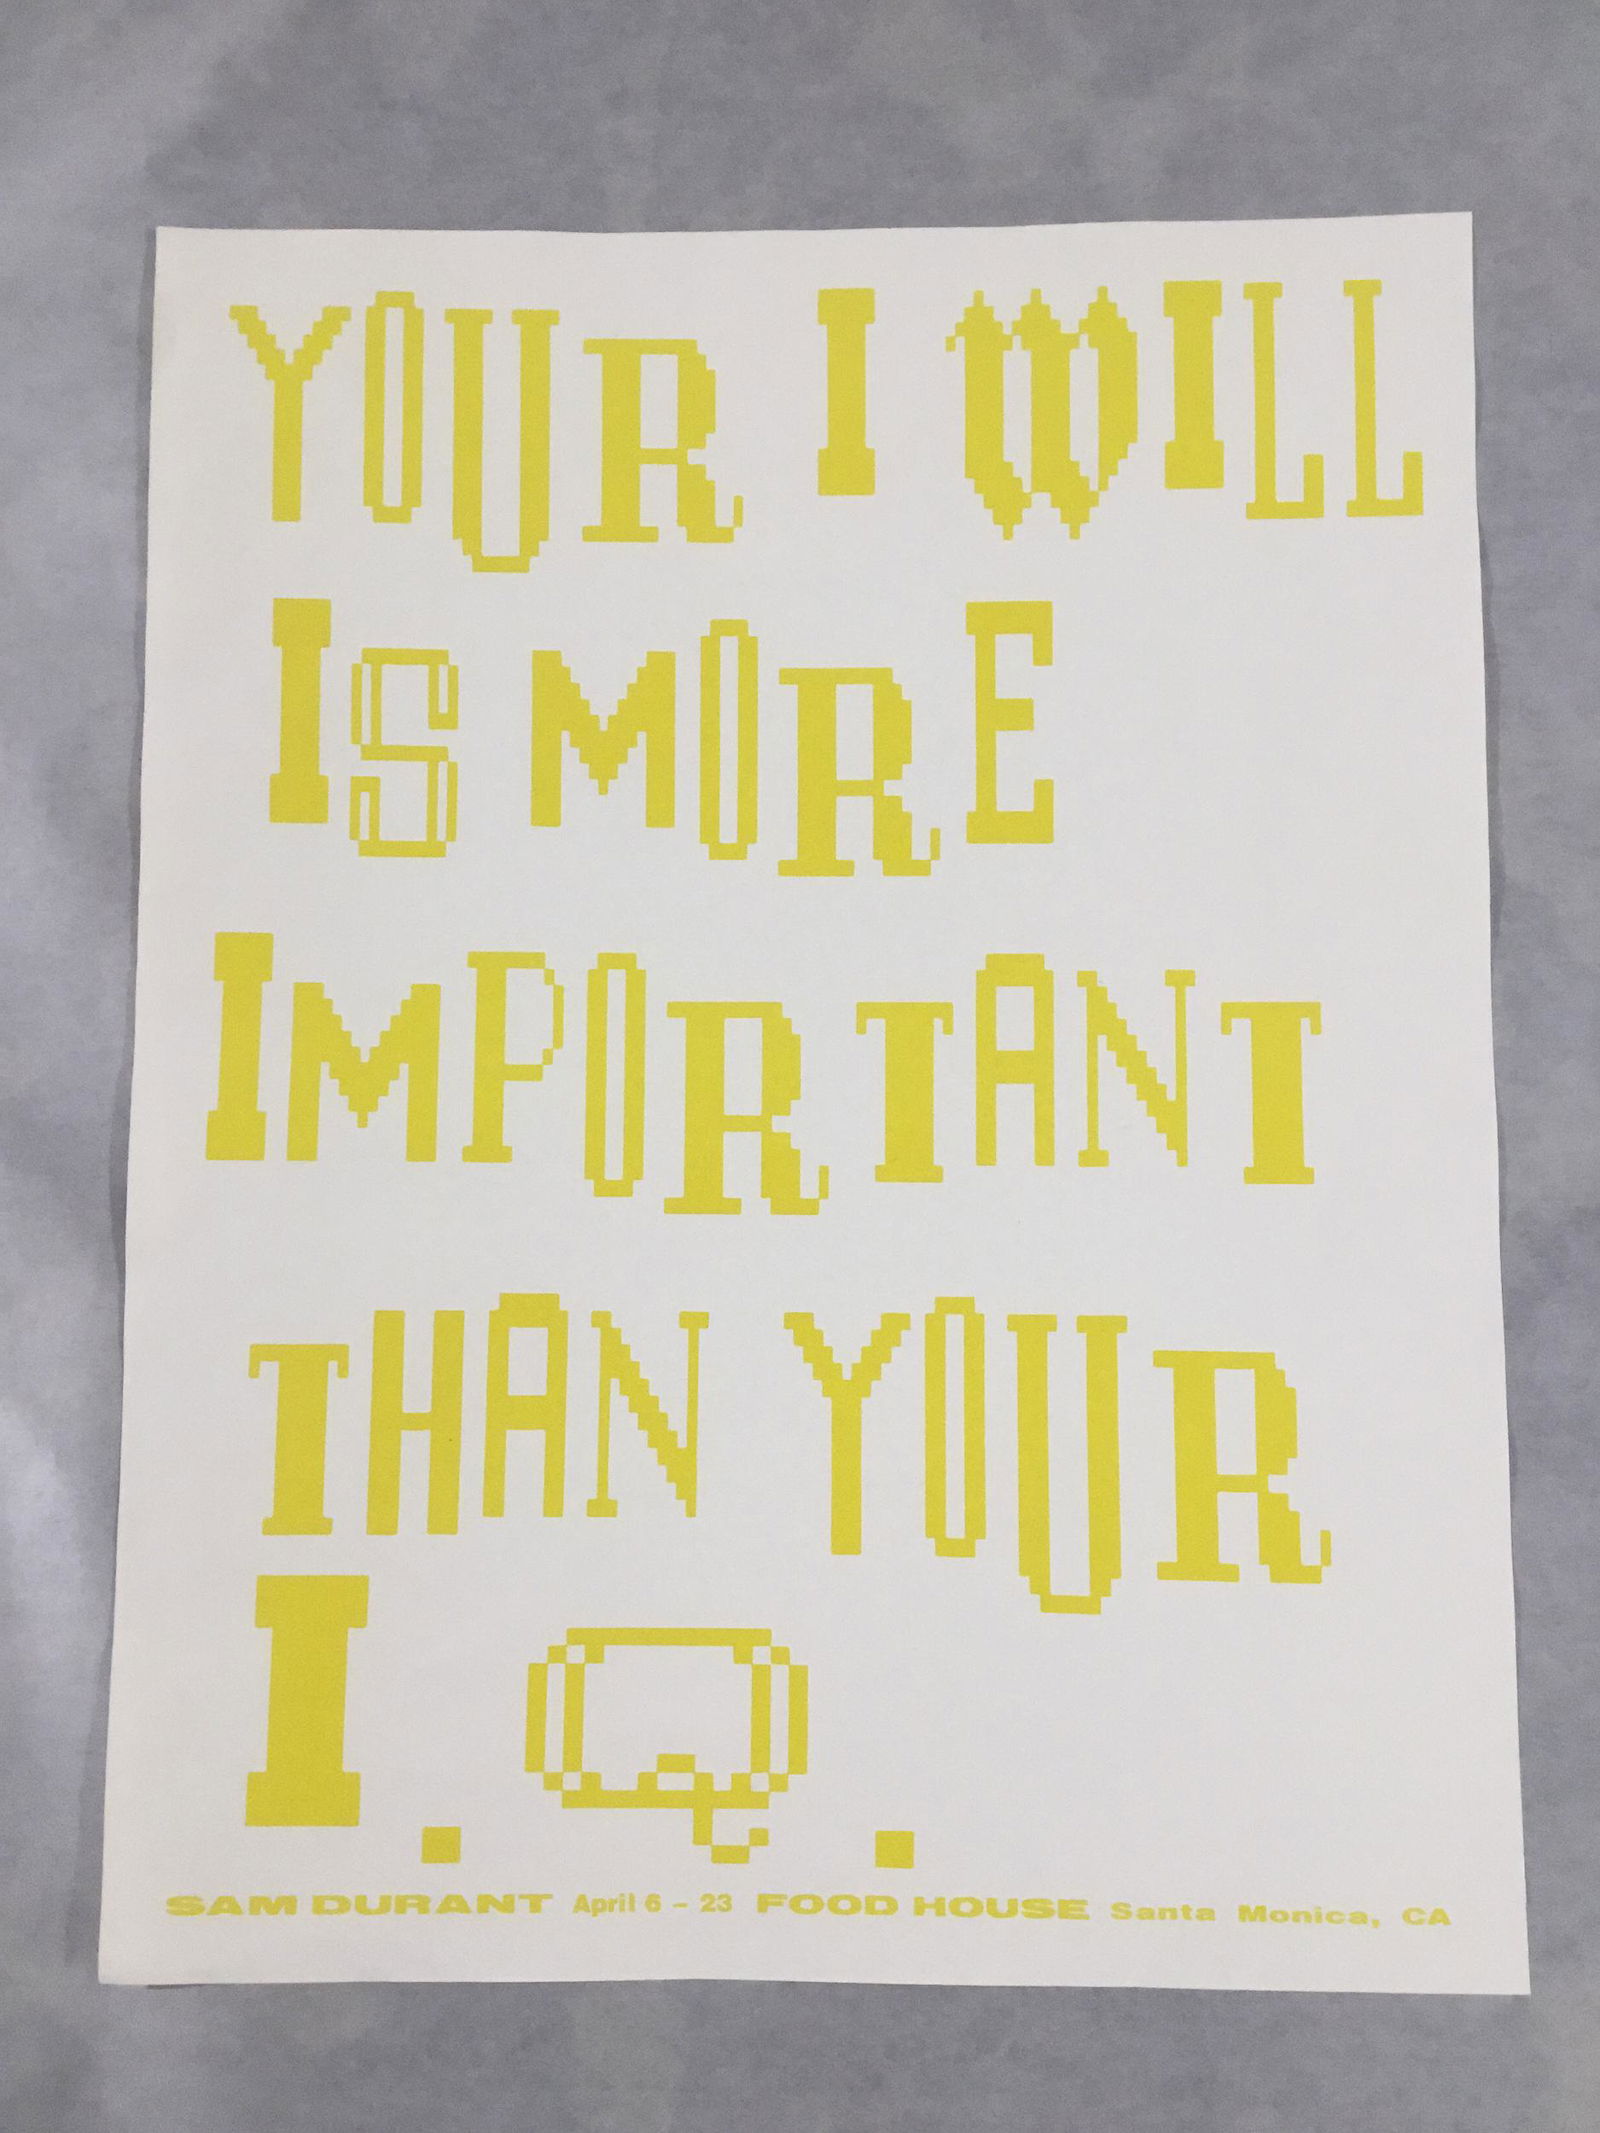 YOUR I WILL
IS MORE
IMPORTANT
THAN YOUR
I. Q.
SAM DURANT April 6 - 23 FOOD HOUSE Santa Monica, CA